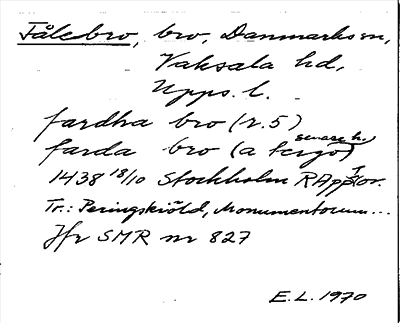 Fålebro, bro, Danmarks sn,
Vaksala hd,
Upps. l.
fardha bro (r. 5)
farda bro (a tergo) senare h.
1438 18/10 Stockholm RApp or.
Tr.: Peringskiöld, Monumentorum...
Jfr SMR nr 827
E.L. 1970